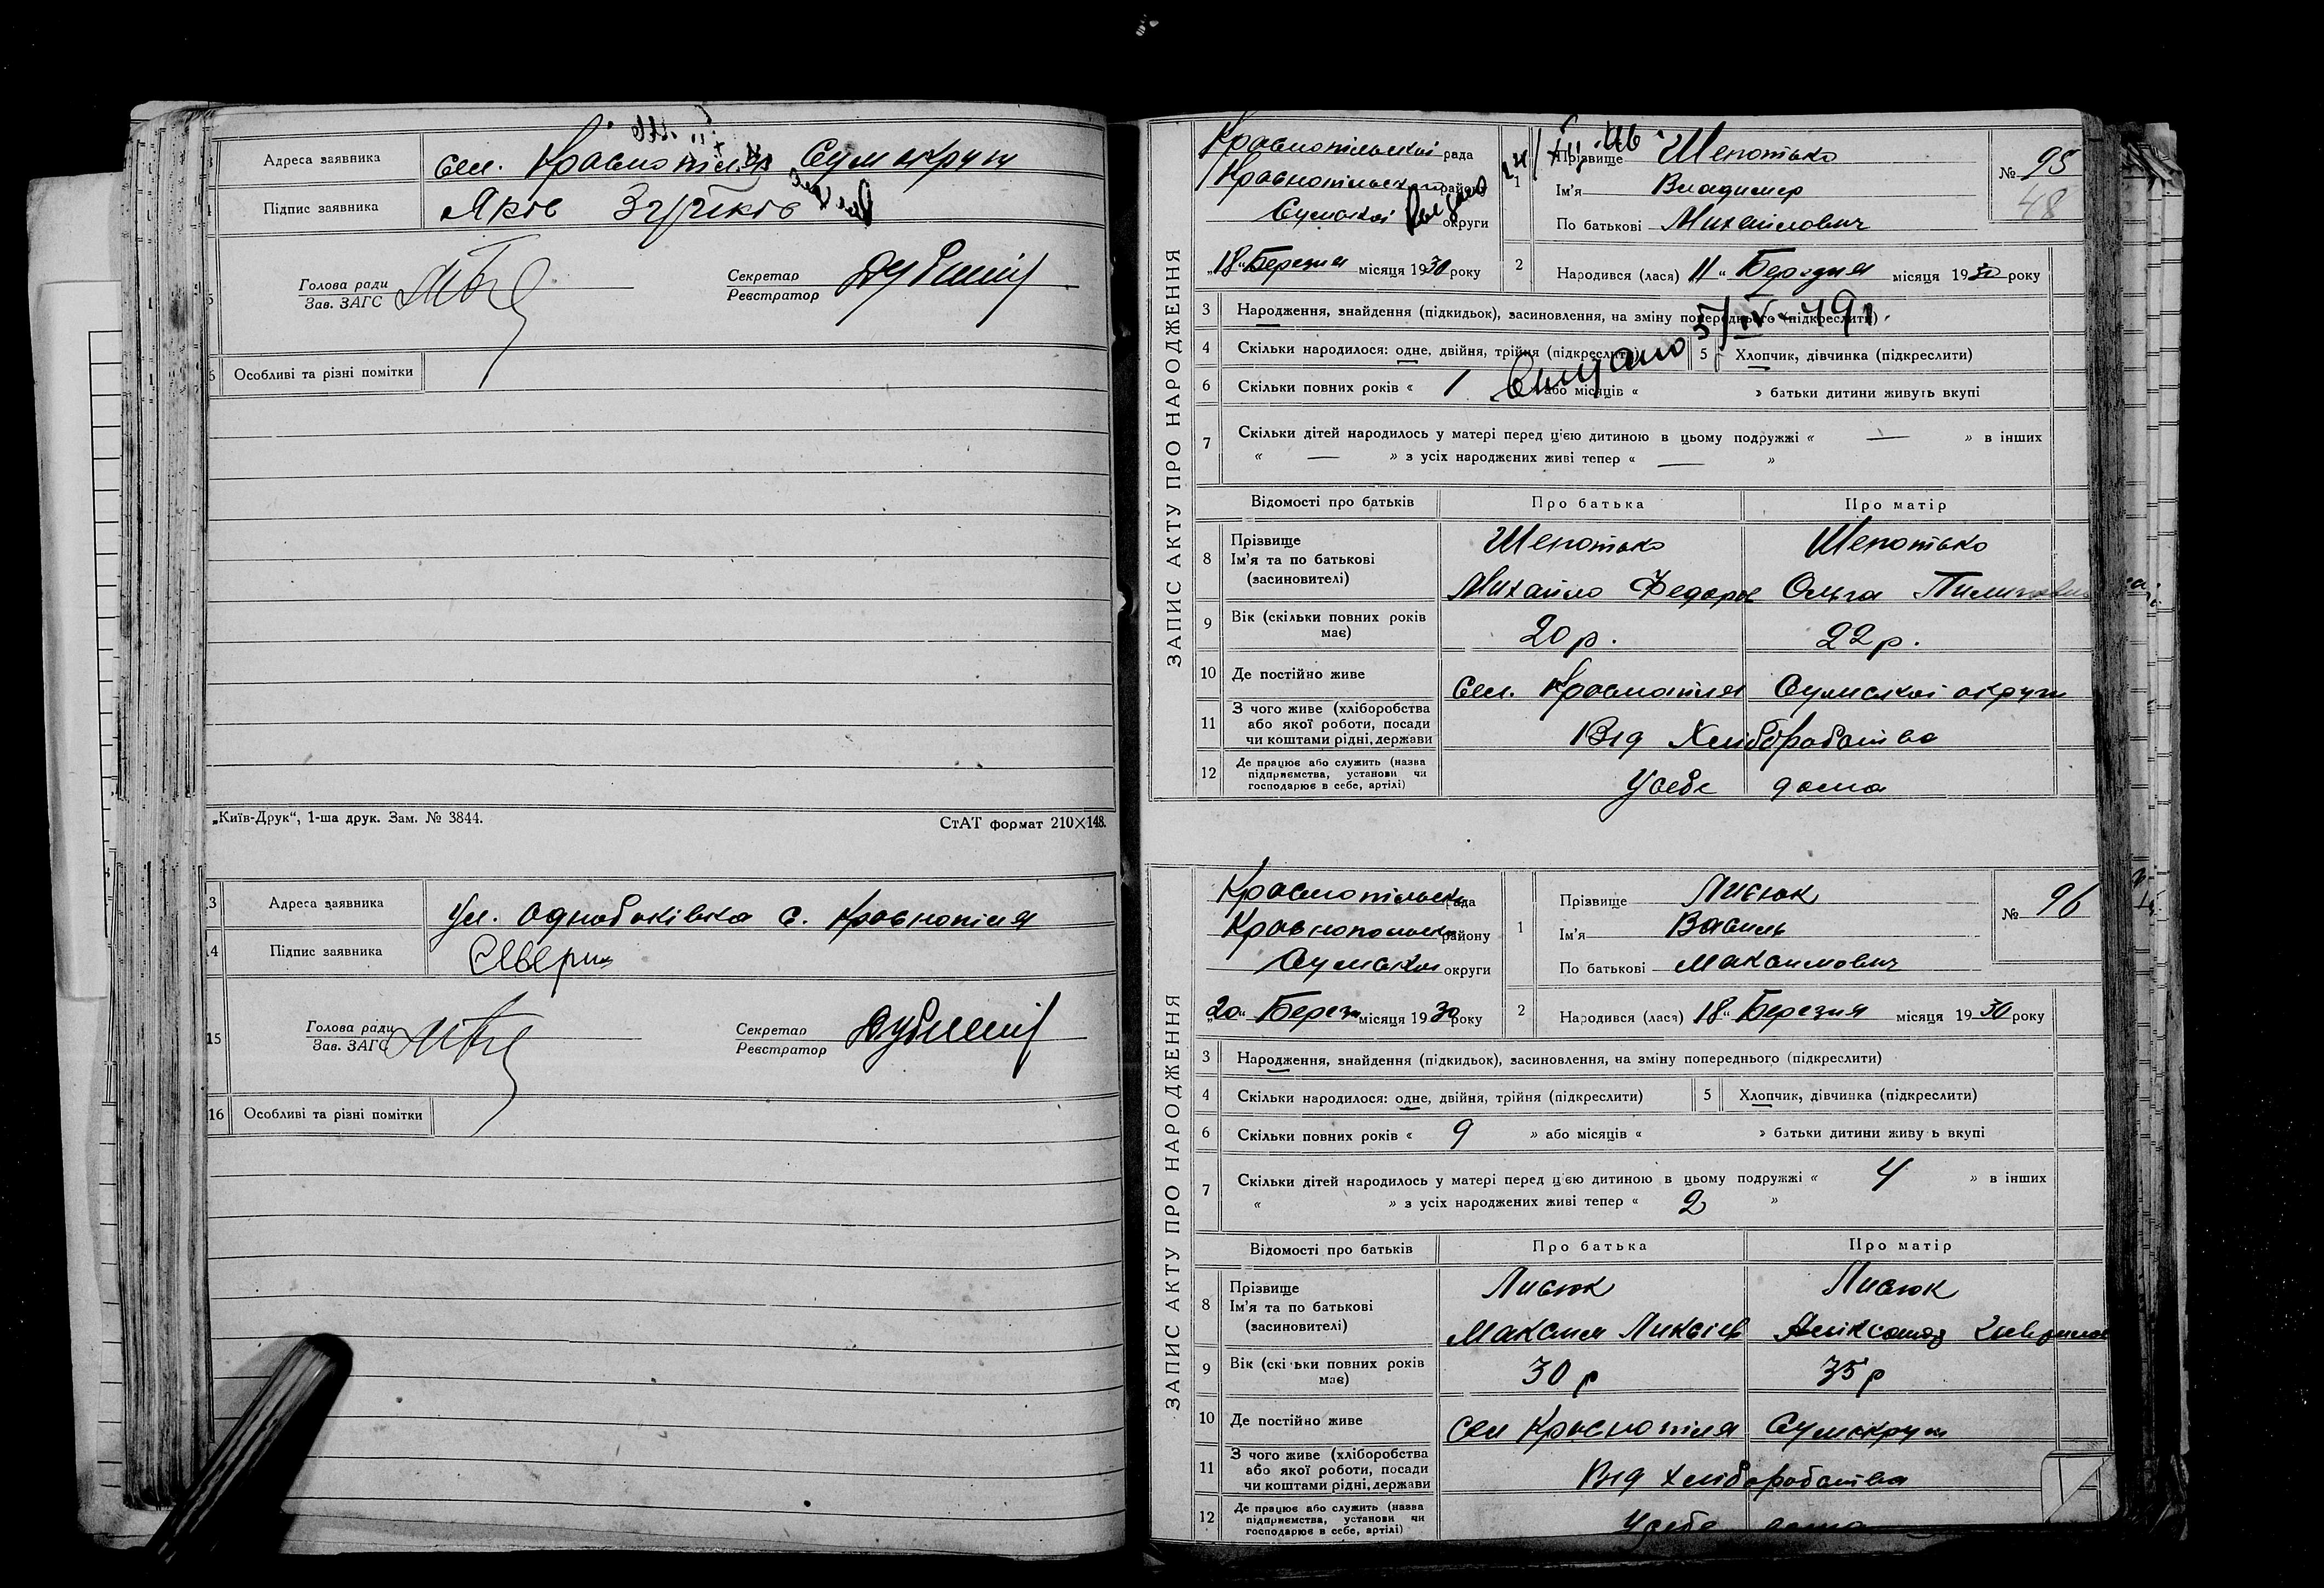 Адреса заявника
сел. Краснопілля Сумокруги
4 Підпис заявника
Яків
Голова ради
Зав. ЗАГС
Секретар
Реєстратор
5
6 Особливі та різні помітки
„Київ-Друк“, 1-ша друк. Зам. № 3844.
СтАТ формат 210×148.
3 Адреса заявника
Ул. Однобоківка с. Краснопілля
14 Підпис заявника
Голова ради
Зав. ЗАГС
Секретар
Реєстратор
15
16 Особливі та різні помітки
ЗАПИС АКТУ ПРО НАРОДЖЕННЯ
Краснопільської рада
Краснопільськ району
Сумської округи
„18“ Березня місяця 1930 року
1 Прізвище Шепотько
Ім'я Владимер
По батькові Михайлович
№ 95
48
2 Народився (лася) 11 “ Березня місяця 1930 року
3 Народження, знайдення (підкидьок), засиновлення, на зміну попереднього (підкреслити)
4 Скільки народилося: одне, двійня, трійня (підкреслити)
5 Хлопчик, дівчинка (підкреслити)
6 Скільки повних років « 1 » або місяців « » батьки дитини живуть вкупі
7 Скільки дітей народилось у матері перед цією дитиною в цьому подружжі « — » в інших
« — » з усіх народжених живі тепер « — »
Відомості про батьків
Про батька
Про матір
8 Прізвище
Ім'я та по батькові
(засиновителі)
Шепотько
Шепотько
Михайло Федоров
Ольга
9 Вік (скільки повних років
має)
20 р.
22 р.
10 Де постійно живе
Сел. Краснопілля Сумської округи
11 З чого живе (хліборобства
або якої роботи, посади
чи коштами рідні, держави
Від Хліборобства
12 Де працює або служить (назва
підприємства, установи чи
господарює в себе, артілі)
Усебе дома
ЗАПИС АКТУ ПРО НАРОДЖЕННЯ
Краснопільська рада
Краснопольськ району
Сумської округи
„20“ Березн місяця 1930 року
1 Прізвище Лисюк
Ім'я Василь
По батькові Максимович
№ 96
2 Народився (лася) 18 “ Березня місяця 1930 року
3 Народження, знайдення (підкидьок), засиновлення, на зміну попереднього (підкреслити)
4 Скільки народилося: одне, двійня, трійня (підкреслити)
5 Хлопчик, дівчинка (підкреслити)
6 Скільки повних років « 9 » або місяців « » батьки дитини живу ь вкупі
7 Скільки дітей народилось у матері перед цією дитиною в цьому подружжі « 4 » в інших
« » з усіх народжених живі тепер « 2 »
Відомості про батьків
Про батька
Про матір
8 Прізвище
Ім'я та по батькові
(засиновителі)
Лисюк
Лисюк
Максим
9 Вік (скі ьки повних років
має)
30 р
35 р
10 Де постійно живе
Сел Краснопілля Сумокруги
11 З чого живе (хліборобства
або якої роботи, посади
чи коштами рідні, держави
Від хліборобства
12 Де працює або служить (назва
підприємства, установи чи
господарює в себе, артілі)
Усебе дома